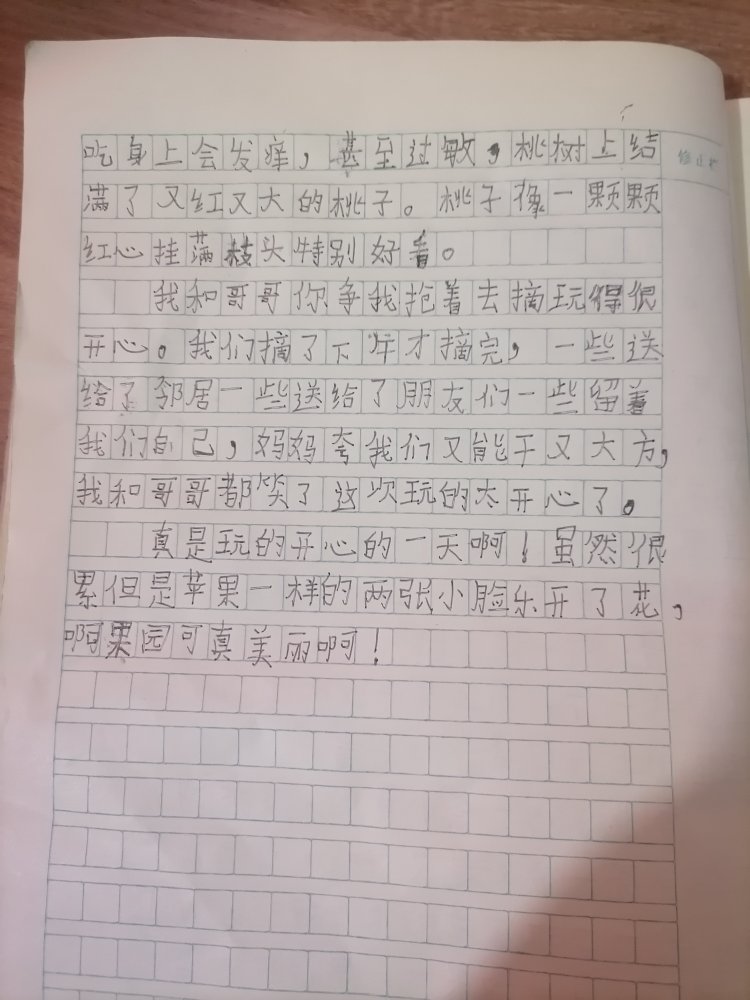 吃身上会发痒，甚至过敏，桃树上结
满了又红又大的桃子。桃子像一颗颗
红心挂满枝头特别好看。
我和哥哥你争我抢着去摘玩得很
开心。我们摘了下午才摘完，一些送
给了邻居一些送给了朋友们一些留着
我们自己，妈妈夸我们又能干又大方，
我和哥哥都笑了这次玩的太开心了。
真是玩的开心的一天啊！虽然很
累但是苹果一样的两张小脸乐开了花，
啊果园可真美丽啊！